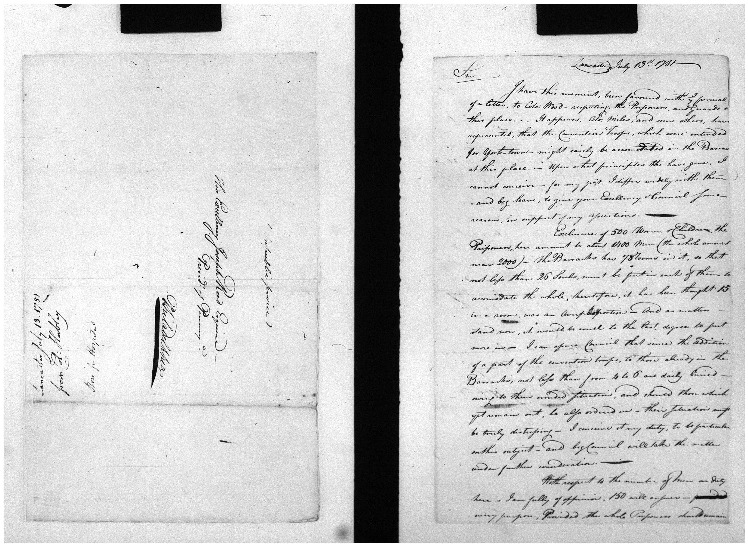 His Excellency Joseph Reed Esquire
Presdt. of
Philadelphia
Lancaster July 13. 1781
from
Lancaster July 13th 1781
Sir
I have this moment, been favored with
of a letter, to Colo. Wood respecting the Prisoners, and Guards
this place. It happens, Colo. Miles, and some others, have
represented, that the Convention troops, which were intended
for York town might easily be accomodated in the Barracks
at this place. Upon what principles the have gone, I
cannot conceive – for my part I differ widely with them
and beg leave, to give your Excellency & Council some
reasons, in support of my
Exclusive of 500 Women & Children, the
Prisoners, here amount to about 1400 Men (the whole amount
near 2000) – the Barracks has 78 rooms in it, so that
not less than 25 Souls, must be put in each of them to
accomodate the whole, heretofore, it has been thought 15
in a room, was an – And as matters
stand now, it would be cruel to the last degree to put
more in – I can assure Council that since the addition
of a part of the convention troops, to those already in the
Barracks, not less than from 4 to 6 are daily buried –
owing to their crouded situation, and should those which
yet remain out, be also ordered in – their situation must
be truly distressing – I conceive it my duty, to be particular
on this subject – and beg Council will take the matter
under further consideration
With respect to the number of Men on duty
here – I am fully of opinion, 150 will answer
every purpose, Provided the whole Prisoners